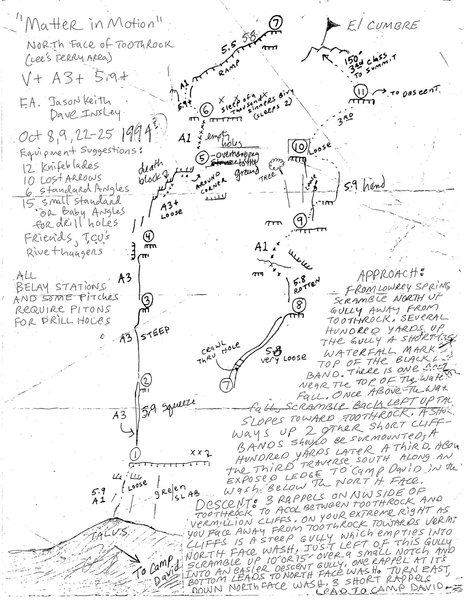 "Matter in Motion"
North Face of Toothrock
(Lee's Ferry Area)
V+ A3+ 5.9+
F.A. Jason Keith
Dave Insley
Oct 8, 9, 22-25 1994
Equipment Suggestions:
12 Knifeblades
10 Lost Arrows
6 standard Angles
15 small standard
or Baby Angles
for drill holes
Friends, TCU's
Rivethangers
ALL
BELAY STATIONS
AND SOME PITCHES
REQUIRE PITONS
FOR DRILL HOLES
El CUMBRE
150'
3rd class
to summit
11
→ TO DESCENT
3rd
7
5.5 5.8
RAMP
A1
5.9+
6
x x
Sleep of a
Thousand
Sinners Bivy
(sleeps 2)
A1
empty
holes
5
-overhanging
to the
ground
death
block
AROUND
CORNER
A3+
LOOSE
4
A3
3
A3
STEEP
2
A3
5.9 Squeeze
1
x x 2
10
LOOSE
TREE
Loose
5.9 hand
9
A1
5.8
ROTTEN
8
5.8
very Loose
CRAWL
THRU HOLE
7
5.9
A1
Loose
green
SLAB
TALUS
To Camp
David
APPROACH:
FROM LOWREY SPRING
SCRAMBLE NORTH UP
GULLY AWAY FROM
TOOTHROCK. SEVERAL
HUNDRED YARDS UP
THE GULLY A SHORT
WATERFALL MARK
TOP OF THE BLACK
BAND. THERE IS ONE
NEAR THE TOP OF THE WATER
FALL. ONCE ABOVE THE WATER
fall, SCRAMBLE BACK LEFT UP TAL
SLOPES TOWARD TOOTHROCK. A SHORT
WAYS UP 2 OTHER SHORT CLIFF-
BANDS SHOULD BE SURMOUNTED, A
HUNDRED YARDS LATER A THIRD. ABOVE
THE THIRD TRAVERSE SOUTH ALONG AN
EXPOSED LEDGE TO CAMP DAVID IN THE
WASH BELOW THE NORTH FACE.
DESCENT: 3 RAPPELS ON NW SIDE OF
TOOTHROCK TO A COL BETWEEN TOOTHROCK AND
VERMILLION CLIFFS. ON YOUR EXTREME RIGHT AS
YOU FACE AWAY FROM TOOTHROCK TOWARDS VERMI
CLIFFS IS A STEEP GULLY WHICH EMPTIES INTO
NORTH FACE WASH. JUST LEFT OF THIS GULLY
SCRAMBLE UP 10' OR 15' OVER A SMALL NOTCH AND
INTO AN EASIER DESCENT GULLY. ONE RAPPEL AT ITS
BOTTOM LEADS TO NORTH FACE WASH. TURN EAST,
DOWN NORTH FACE WASH. 3 SHORT RAPPELS
LEAD TO CAMP DAVID.